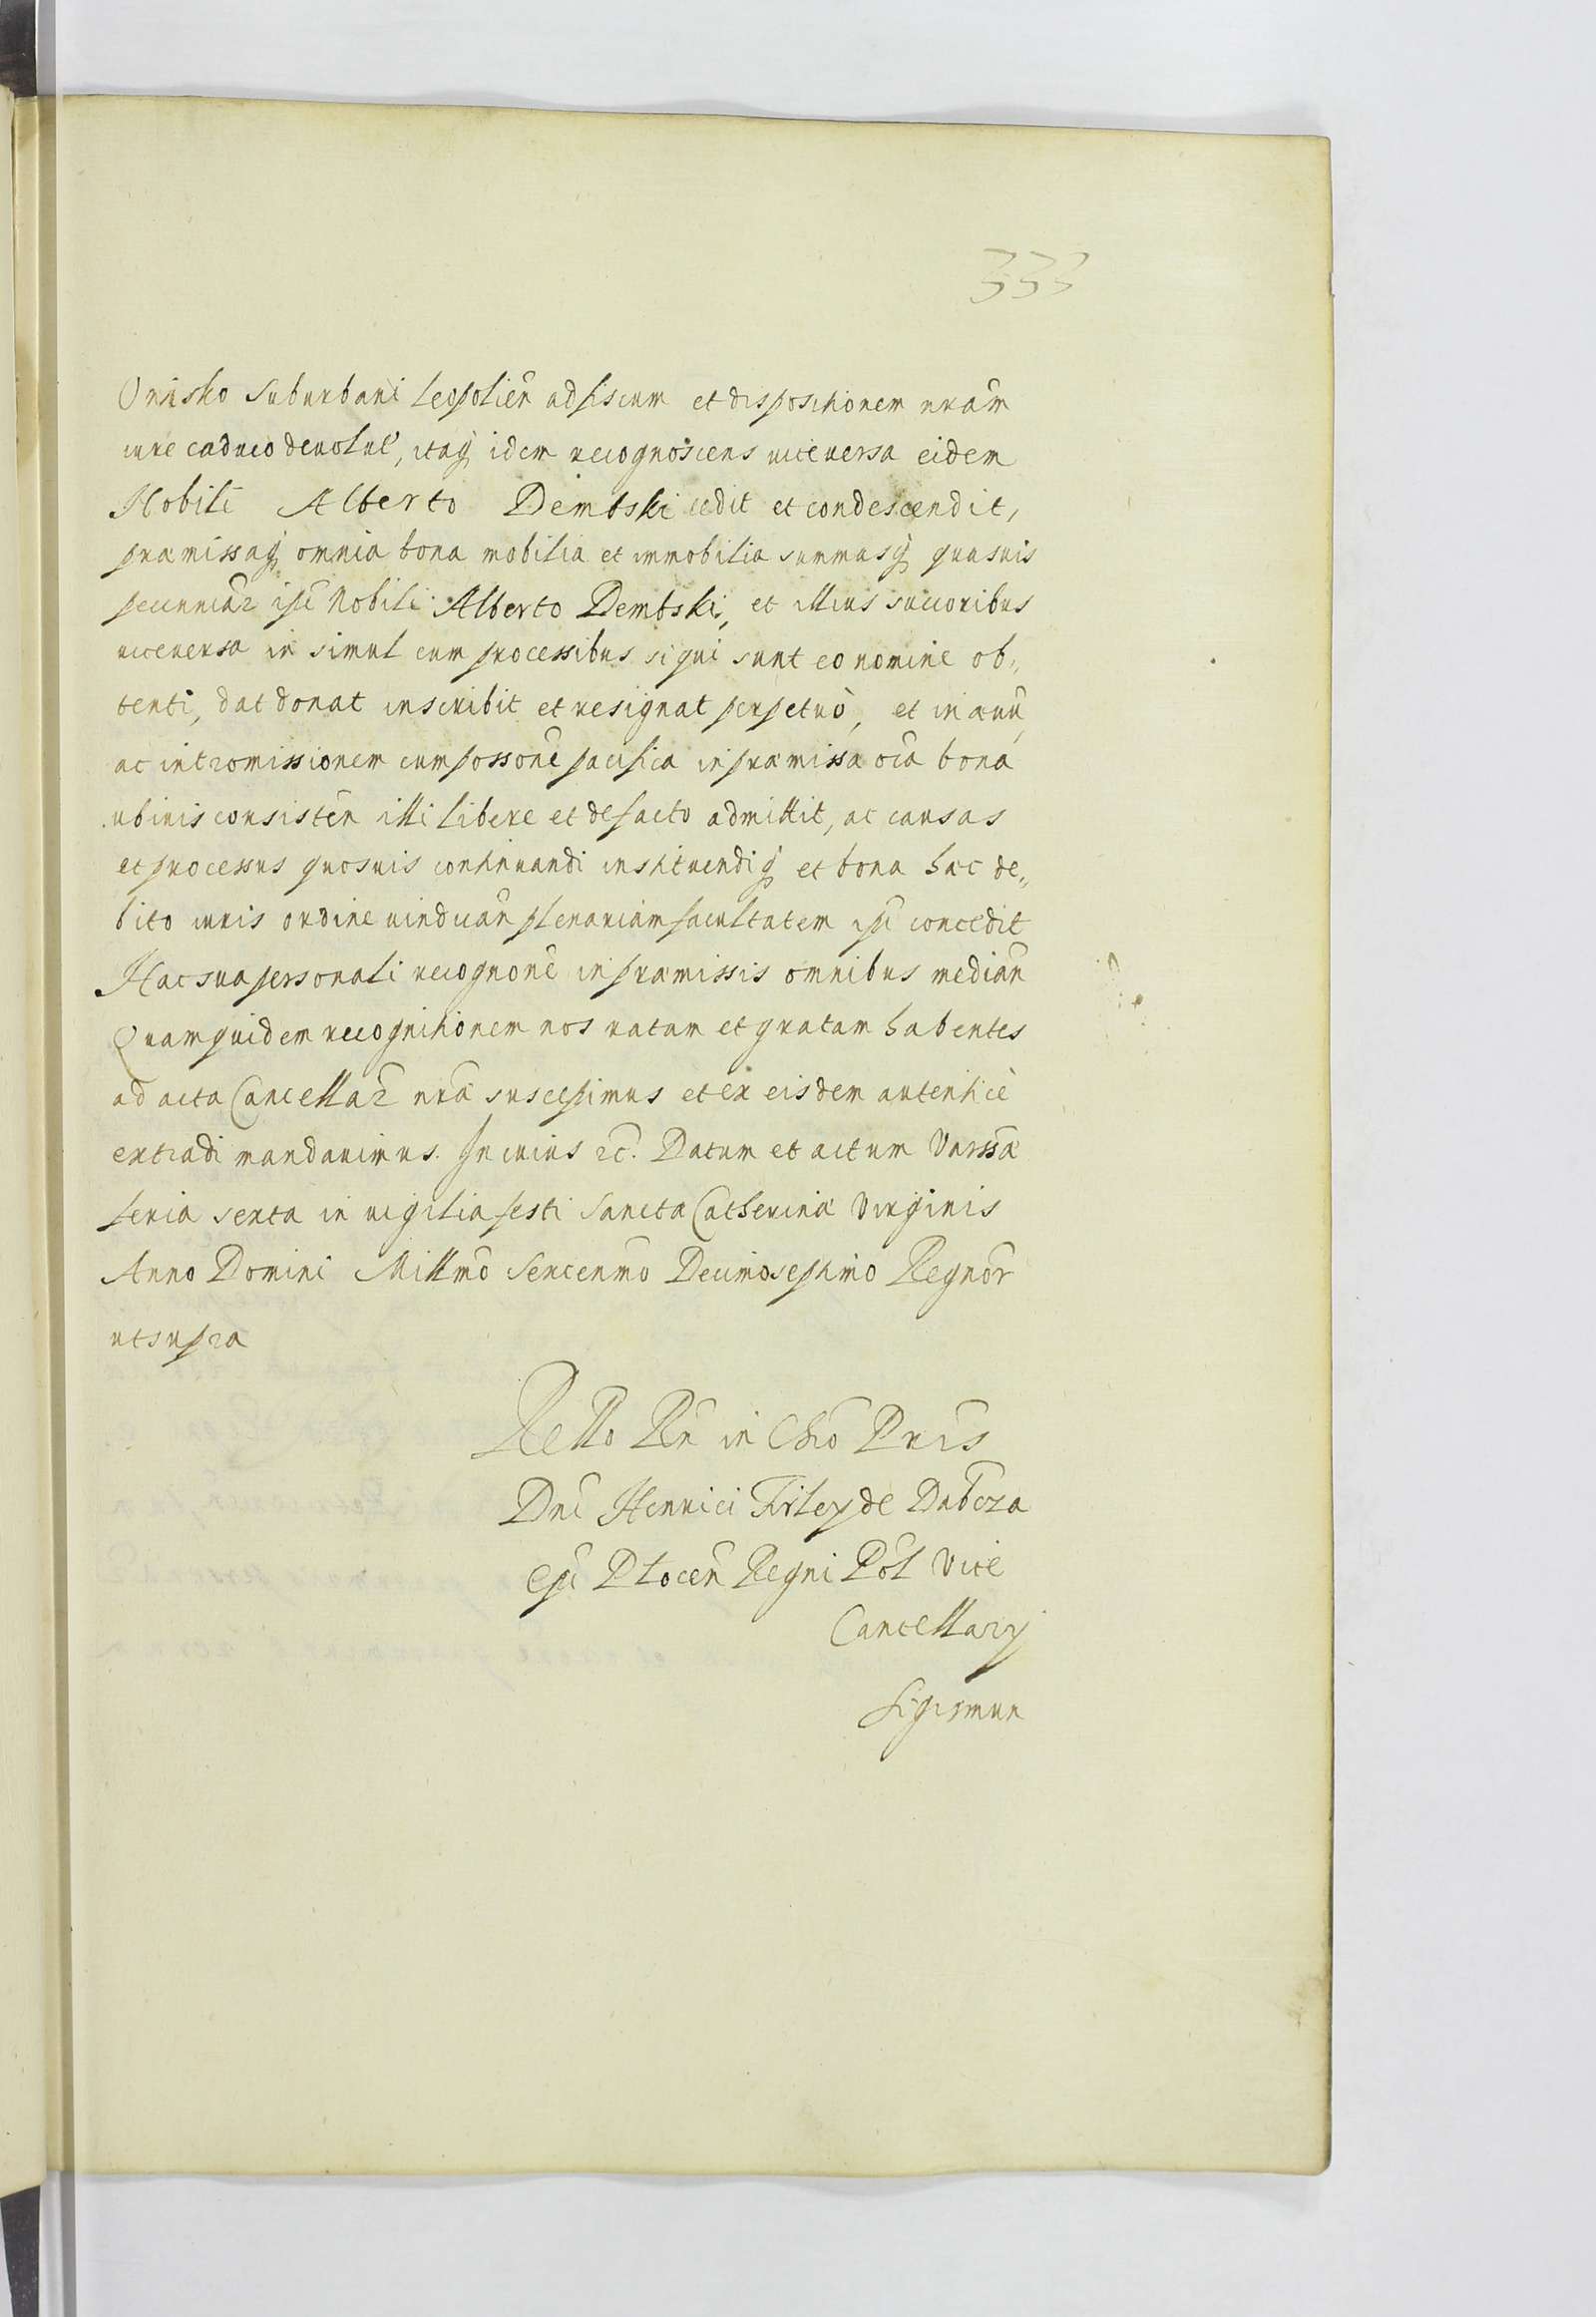 333
Onisko Suburbani Leopolien̄ ad fiscum et dispositionem nr̄am
iure caduco devolut̄, itaq̨ idem recognoscens viceversa eidem
Nobili Alberto Dembski cedit et condescendit,
præmissaq̨ omnia bona mobilia et immobilia summasq̨ quasvis
pecuniar̄ ip̄i Nobili Alberto Dembski, et illius succoribus
viceversa in simul cum processibus si qui sunt eo nomine ob„
tenti, dat donat inscribit et resignat perpetuò, et in
ac intromissionem cum possone pacifica in præmissa oīa bona
ubivis consisten̄ illi libere et de facto admittit, ac causas
et processus quosvis continuandi instituendiq̨ et bona hæc de„
bito iuris ordine vindican̄ plenariam facultatem ip̄i concedit
Hac sua personali recognone in præmissis omnibus median̄
Quam quidem recognitionem nos ratam et gratam habentes
ad acta Cancellar̄ nr̄æ suscepimus et ex eisdem autenticè
extradi mandavimus. In cuius ec̄. Datum et actum Varssæ
feria sexta in vigilia festi Sanctæ Catherinæ Virginis
Anno Domini Millmō Sexcenmo Decimoseptimo Regnor̄
ut supra
Rello Rn̄ in Chr̄o Pr̄is
Dn̄i Henrici Firley de Dabroza
Ep̄i Plocen̄ Regni Pol̄ Vice
Cancellarij
Sigismun